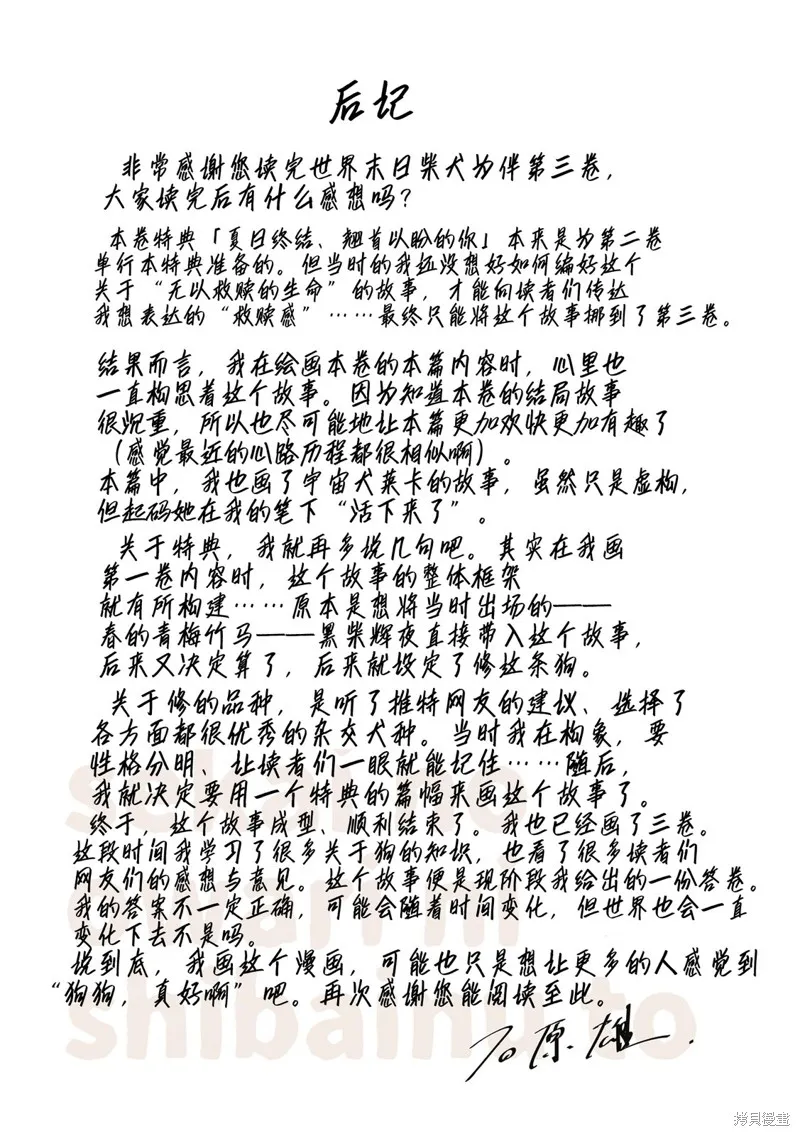 后记
非常感谢您读完世界末日柴犬为伴第三卷,
大家读完后有什么感想吗?
本卷特典「夏日终结、翘首以盼的你」本来是为第二卷
单行本特典准备的。但当时的我还没想好如何编好这个
关于“无以救赎的生命”的故事，才能向读者们传达
我想表达的“救赎感”……最终只能将这个故事挪到了第三卷。
结果而言，我在绘画本卷的本篇内容时，心里也
一直构思着这个故事。因为知道本卷的结局故事
很沉重，所以也尽可能地让本篇更加欢快更加有趣了
（感觉最近的心路历程都很相似啊）。
本篇中，我也画了宇宙犬莱卡的故事，虽然只是虚构，
但起码她在我的笔下“活下来了”。
关于特典，我就再多说几句吧。其实在我画
第一卷内容时，这个故事的整体框架
就有所构建……原本是想将当时出场的——
春的青梅竹马——黑柴辉夜直接带入这个故事，
后来又决定算了，后来就设定了修这条狗。
关于修的品种，是听了推特网友的建议、选择了
各方面都很优秀的杂交犬种。当时我在构象，要
性格分明、让读者们一眼就能记住……随后，
我就决定要用一个特典的篇幅来画这个故事了。
终于，这个故事成型、顺利结束了。我也已经画了三卷。
这段时间我学习了很多关于狗的知识，也看了很多读者们
网友们的感想与意见。这个故事便是现阶段我给出的一份答卷。
我的答案不一定正确，可能会随着时间变化，但世界也会一直
变化下去不是吗。
说到底，我画这个漫画，可能也只是想让更多的人感觉到
“狗狗，真好啊”吧。再次感谢您能阅读至此。
石原雄
sekai no
owari ni
shibainu to
拷貝漫畫